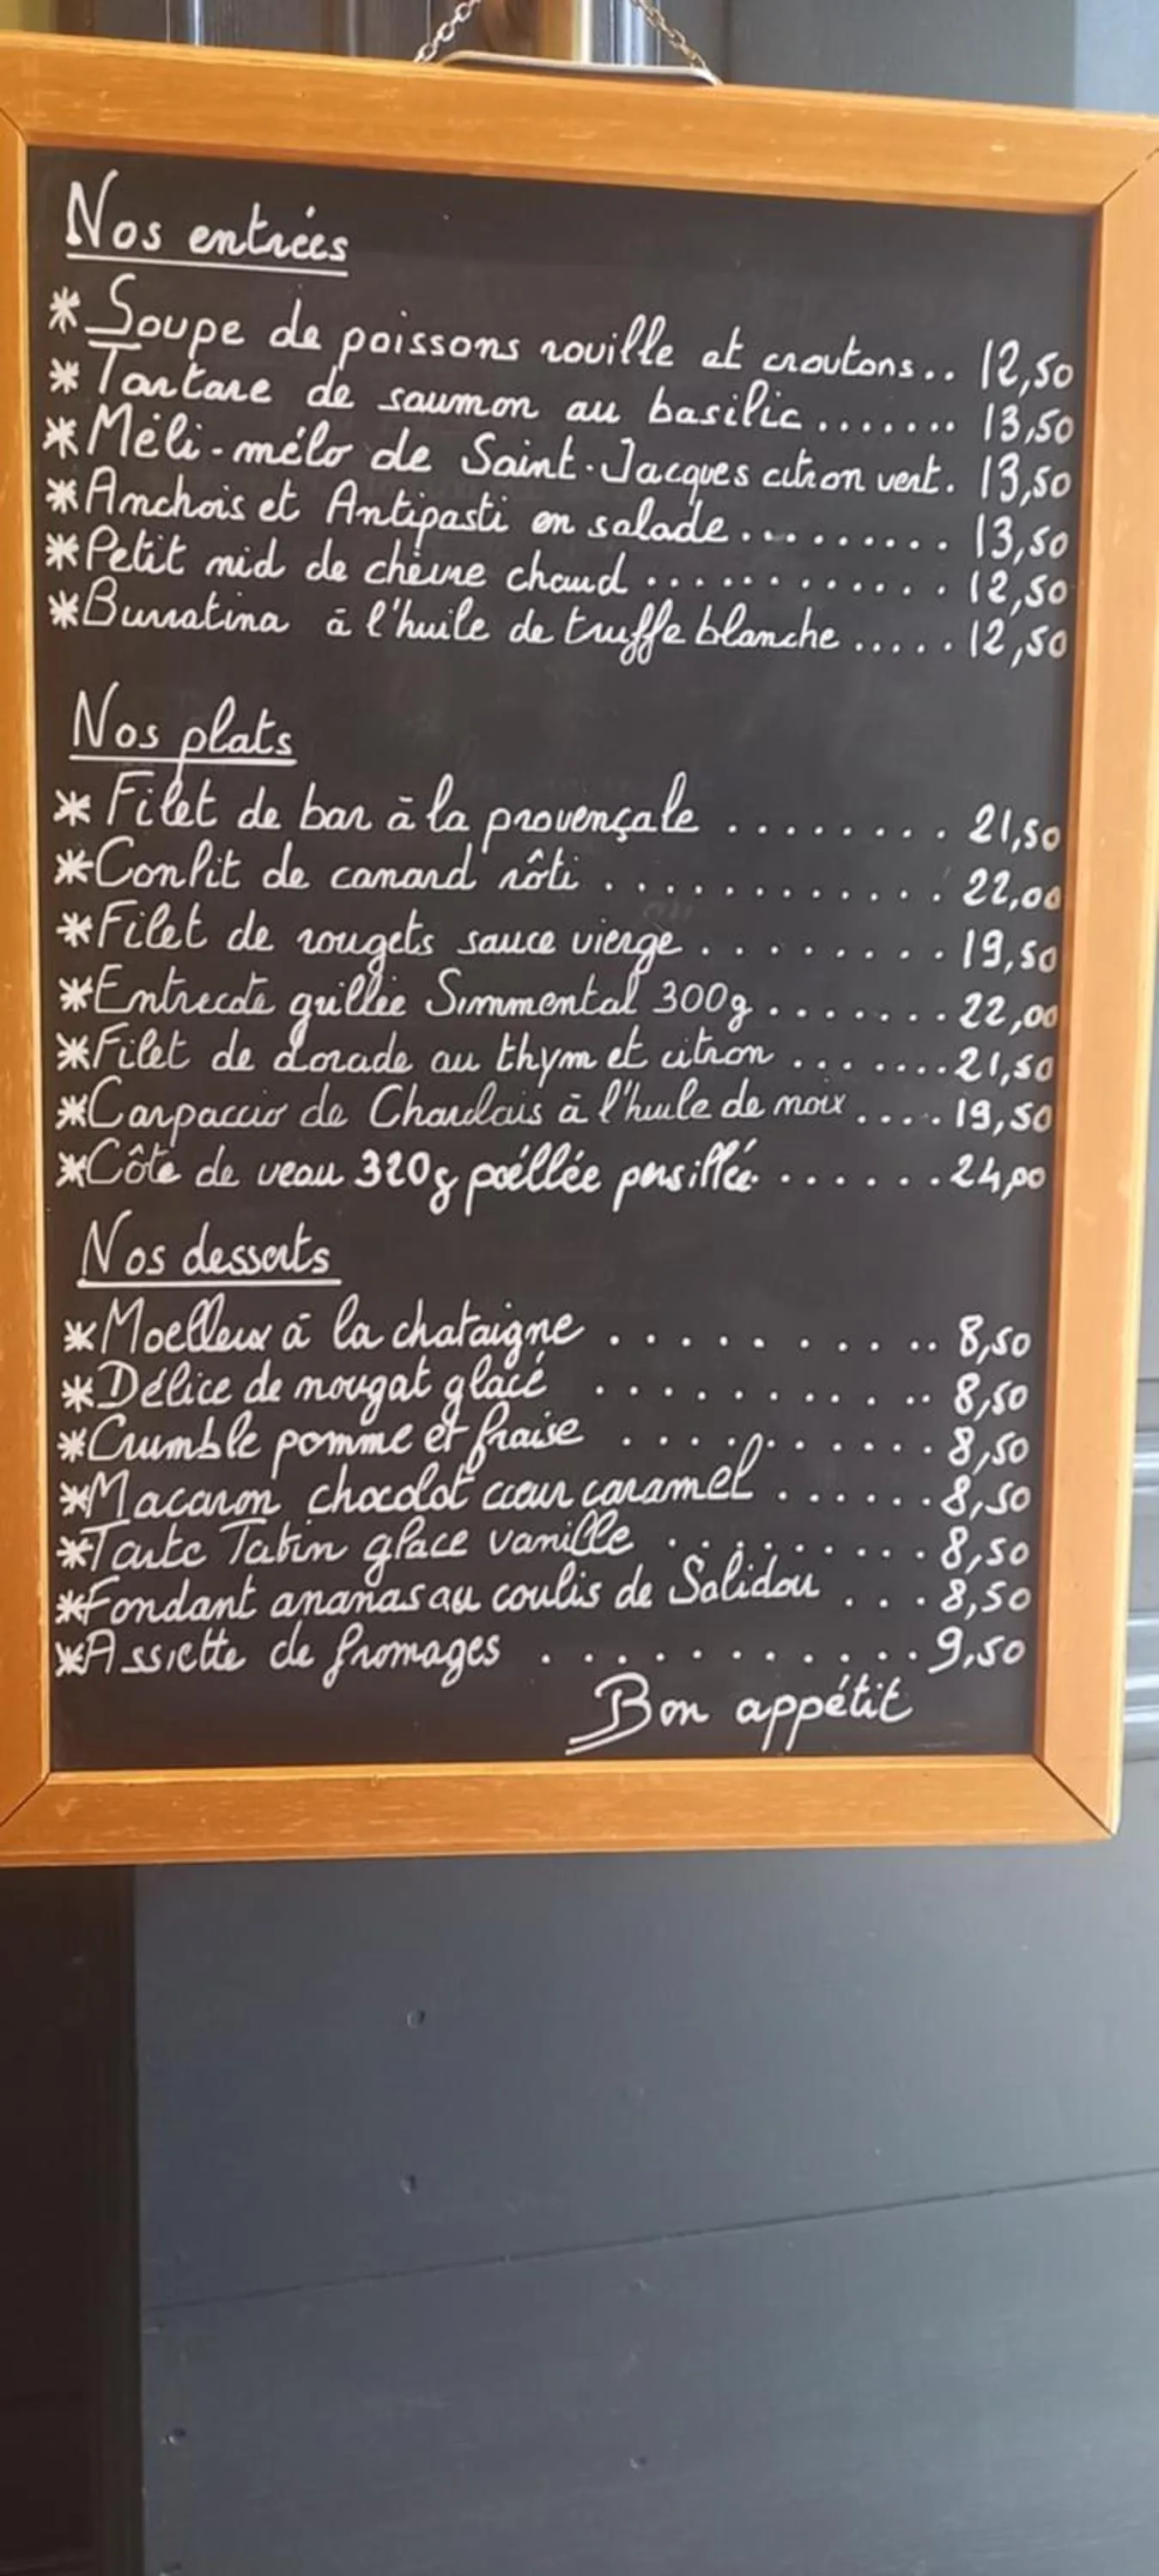 Nos entrées
* Soupe de poissons rouille et croutons.. 12,50
* Tartare de saumon au basilic....... 13,50
* Méli-mélo de Saint-Jacques citron vert. 13,50
* Anchois et Antipasti en salade......... 13,50
* Petit nid de chèvre chaud ............ 12,50
* Burratina à l'huile de truffe blanche ..... 12,50
Nos plats
* Filet de bar à la provençale ........ 21,50
* Confit de canard rôti ............ 22,00
* Filet de rougets sauce vierge ........ 19,50
* Entrecôte grillée Simmental 300g ....... 22,00
* Filet de dorade au thym et citron ....... 21,50
* Carpaccio de Charolais à l'huile de noix .... 19,50
* Côte de veau 320g poêllée persillée ...... 24,00
Nos desserts
* Moelleux à la chataigne ........... 8,50
* Délice de nougat glacé ........... 8,50
* Crumble pomme et fraise .......... 8,50
* Macaron chocolat cœur caramel ...... 8,50
* Tarte Tatin glace vanille ......... 8,50
* Fondant ananas au coulis de Salidou ... 8,50
* Assiette de fromages ........... 9,50
Bon appétit